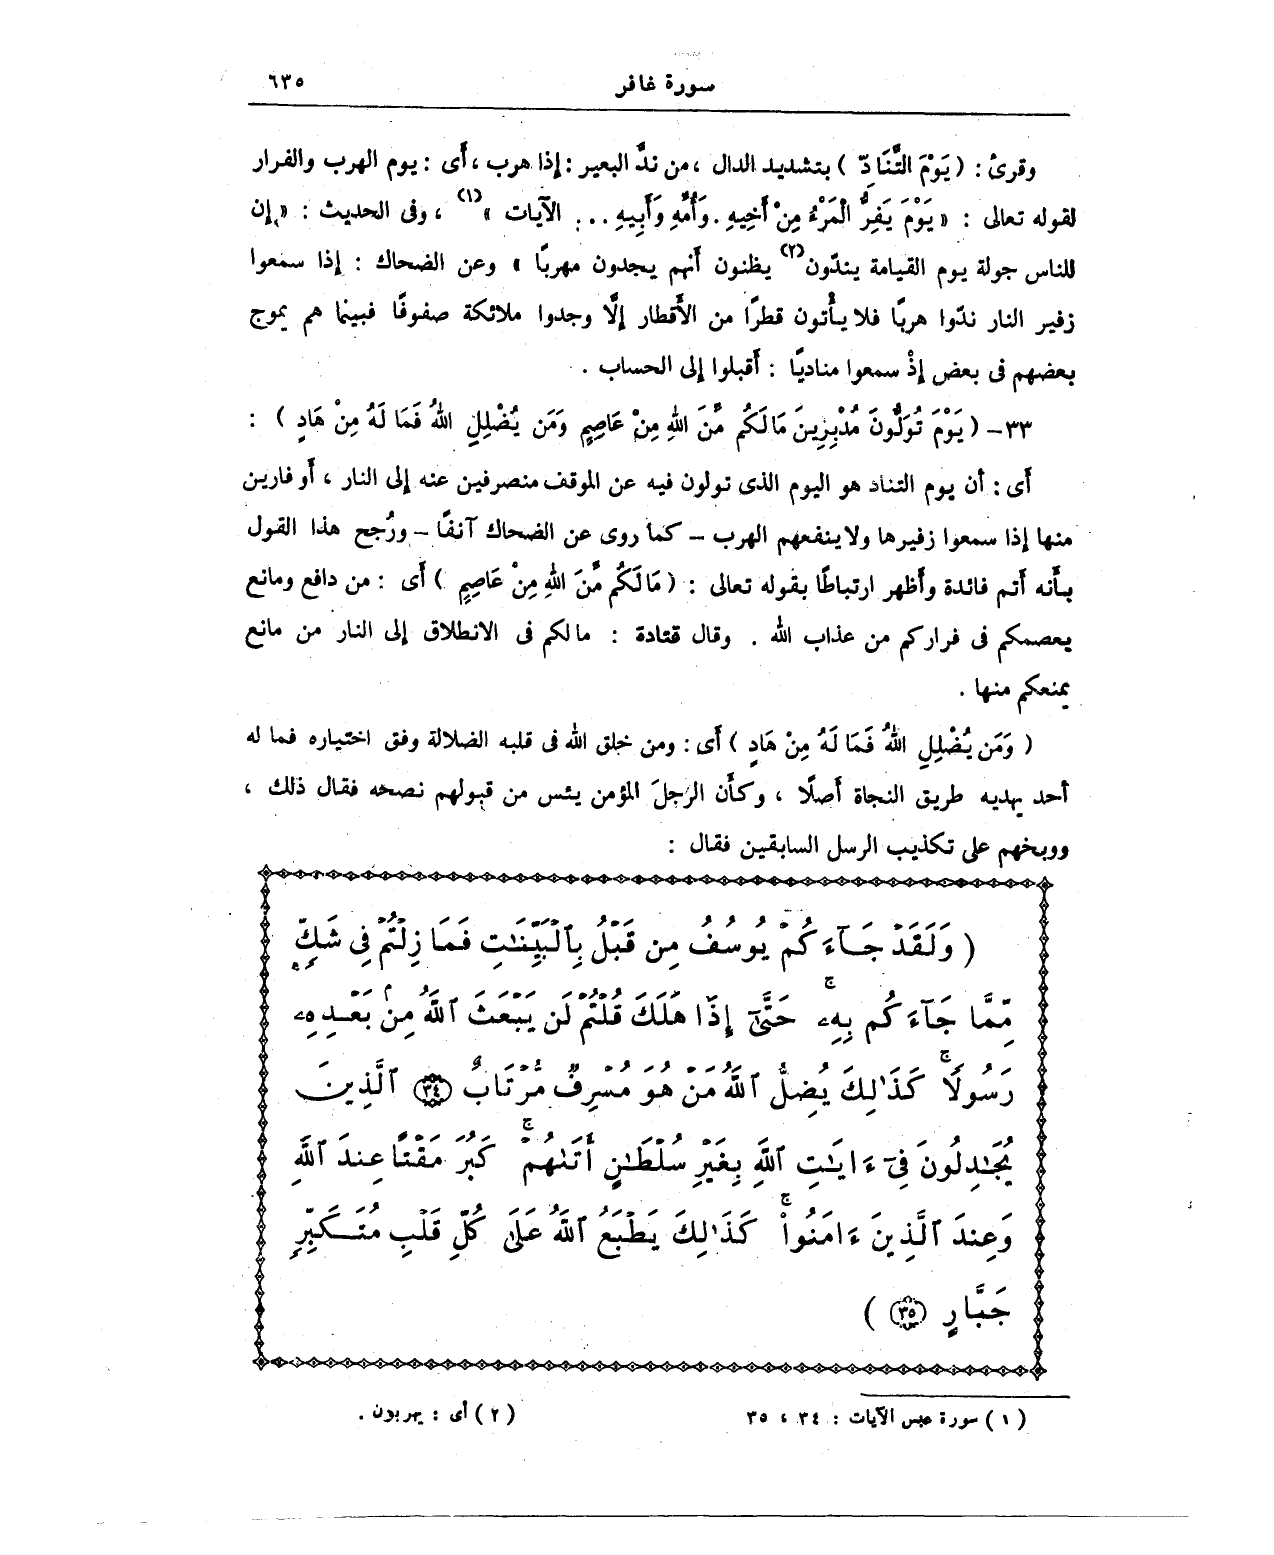 سورة غافر
٦٣٥
وقرئ : ( يَوْمَ التَّنَادِّ ) بتشديد الدال ، من ندَّ البعير : إذا هرب ، أَى : يوم الهرب والفرار
لقوله تعالى : « يَوْمَ يَفِرُّ الْمَرْءُ مِنْ أَخِيهِ . وَأُمِّهِ وَأَبِيهِ ... الآيات »(١) ، وفى الحديث : « إن
للناس جولة يوم القيامة يندّون(٢) يظنون أنهم يجدون مهربًا » وعن الضحاك : إذا سمعوا
زفير النار ندّوا هربًا فلا يأْتون قطرًا من الأَقطار إلَّا وجدوا ملائكة صفوفًا فبينما هم يموج
بعضهم فى بعض إذْ سمعوا مناديًا : أَقبلوا إلى الحساب .
٣٣ - ( يَوْمَ تُوَلُّونَ مُدْبِرِينَ مَا لَكُم مِّنَ اللهِ مِنْ عَاصِمٍ وَمَن يُضْلِلِ اللهُ فَمَا لَهُ مِنْ هَادٍ ) :
أَى : أن يوم التناد هو اليوم الذى تولون فيه عن الموقف منصرفين عنه إلى النار ، أَو فارين
منها إذا سمعوا زفيرها ولا ينفعهم الهرب – كما روى عن الضحاك آنفًا – ورُجح هذا القول
بأَنه أتم فائدة وأَظهر ارتباطًا بقوله تعالى : ( مَا لَكُم مِّنَ اللهِ مِنْ عَاصِمٍ ) أَى : من دافع ومانع
يعصمكم فى فراركم من عذاب الله . وقال قتادة : ما لكم فى الانطلاق إلى النار من مانع
يمنعكم منها .
( وَمَن يُضْلِلِ اللهُ فَمَا لَهُ مِنْ هَادٍ ) أَى : ومن خلق الله فى قلبه الضلالة وفق اختياره فما له
أحد يهديه طريق النجاة أَصلًا ، وكأَن الرجلَ المؤمن يئس من قبولهم نصحه فقال ذلك ،
ووبخهم على تكذيب الرسل السابقين فقال :
( وَلَقَدْ جَآءَكُمْ يُوسُفُ مِن قَبْلُ بِٱلْبَيِّنَٰتِ فَمَا زِلْتُمْ فِى شَكٍّ
مِّمَّا جَآءَكُم بِهِۦ ۖ حَتَّىٰٓ إِذَا هَلَكَ قُلْتُمْ لَن يَبْعَثَ ٱللَّهُ مِنۢ بَعْدِهِۦ
رَسُولًا ۚ كَذَٰلِكَ يُضِلُّ ٱللَّهُ مَنْ هُوَ مُسْرِفٌ مُّرْتَابٌ ﴿٣٤﴾ ٱلَّذِينَ
يُجَٰدِلُونَ فِىٓ ءَايَٰتِ ٱللَّهِ بِغَيْرِ سُلْطَٰنٍ أَتَىٰهُمْ ۖ كَبُرَ مَقْتًا عِندَ ٱللَّهِ
وَعِندَ ٱلَّذِينَ ءَامَنُوا۟ ۚ كَذَٰلِكَ يَطْبَعُ ٱللَّهُ عَلَىٰ كُلِّ قَلْبِ مُتَكَبِّرٍ
جَبَّارٍ ﴿٣٥﴾ )
( ١ ) سورة عبس الآيات : ٣٤ ، ٣٥
( ٢ ) أى : يهربون .